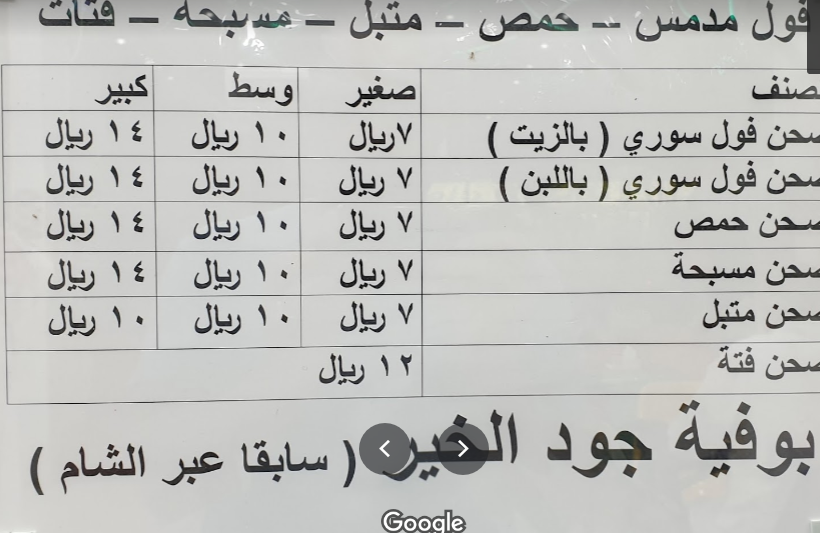 فول مدمس -- حمص – متبل – مسبحة – فتات
صنف صغير وسط كبير
صحن فول سوري ( بالزيت ) ٧ريال ١٠ ريال ١٤ ريال
صحن فول سوري ( باللبن ) ٧ ريال ١٠ ريال ١٤ ريال
صحن حمص ٧ ريال ١٠ ريال ١٤ ريال
صحن مسبحة ٧ ريال ١٠ ريال ١٤ ريال
صحن متبل ٧ ريال ١٠ ريال ١٠ ريال
صحن فتة ١٢ ريال
بوفية جود الخير ( سابقا عبر الشام )
Google